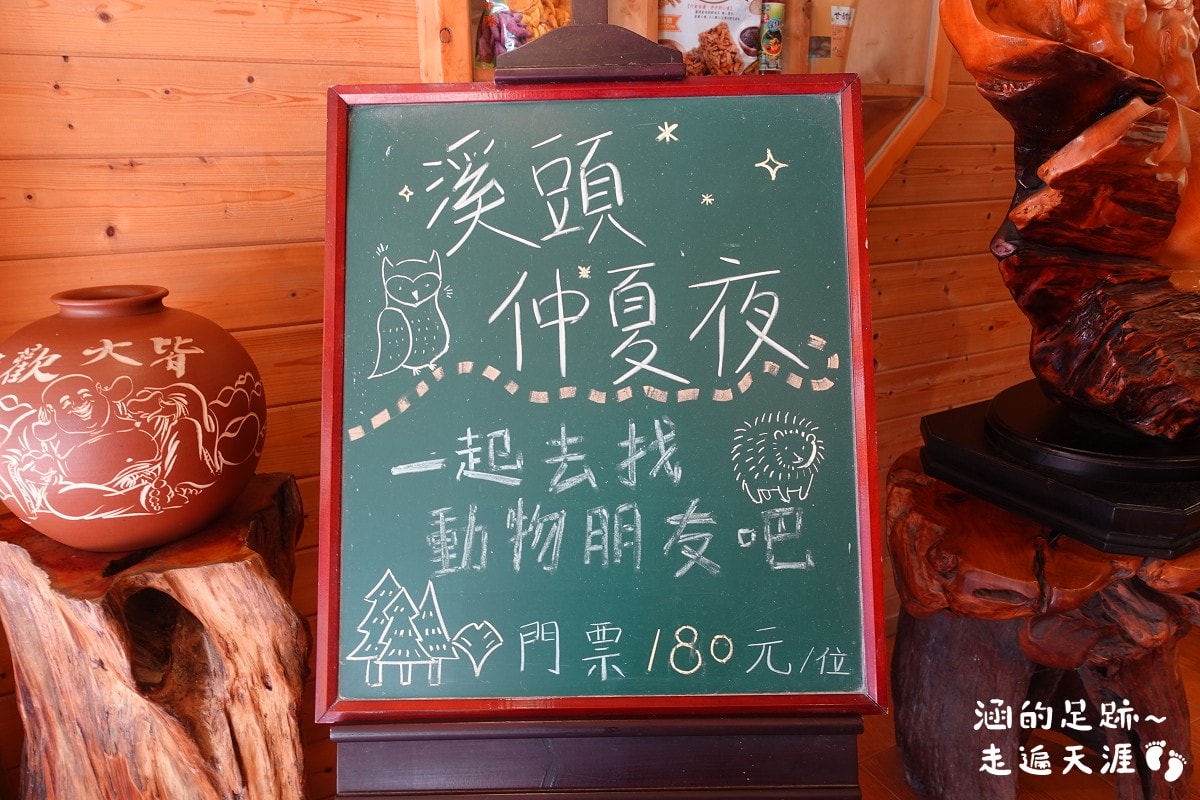 溪頭
仲夏夜
一起去找
動物朋友吧
門票180元/位
歡大皆
涵的足跡~
走遍天涯